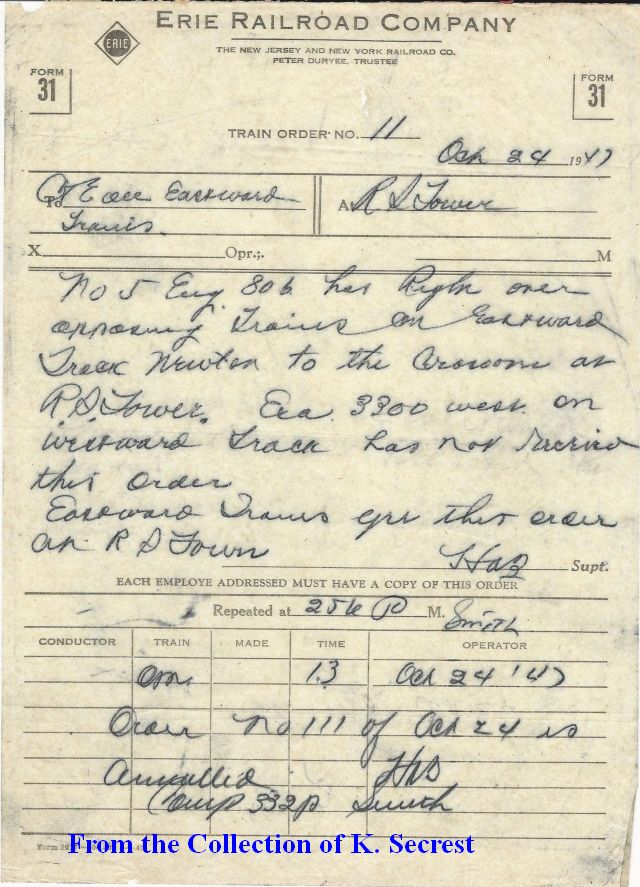 ERIE RAILROAD COMPANY
ERIE
THE NEW JERSEY AND NEW YORK RAILROAD CO.
PETER DURYEE, TRUSTEE
FORM 31
FORM 31
TRAIN ORDER NO. 11
Oct 24 1947
To C&E all Eastward Trains.
At R S Tower
X Opr.; M
No 5 Eng. 806 has Right over
opposing Trains on Eastward
Track Newton to the Crossover at
R.S. Tower. Exa 3300 west on
westward Track has not received
this order
Eastward Trains get this order
at R S Tower
Supt.
EACH EMPLOYE ADDRESSED MUST HAVE A COPY OF THIS ORDER
Repeated at 256 P M. Smith
CONDUCTOR TRAIN MADE TIME OPERATOR
13 Oct 24 '47
Order No 111 of Oct 24 is
Annulled
Comp 332P Smith
From the Collection of K. Secrest